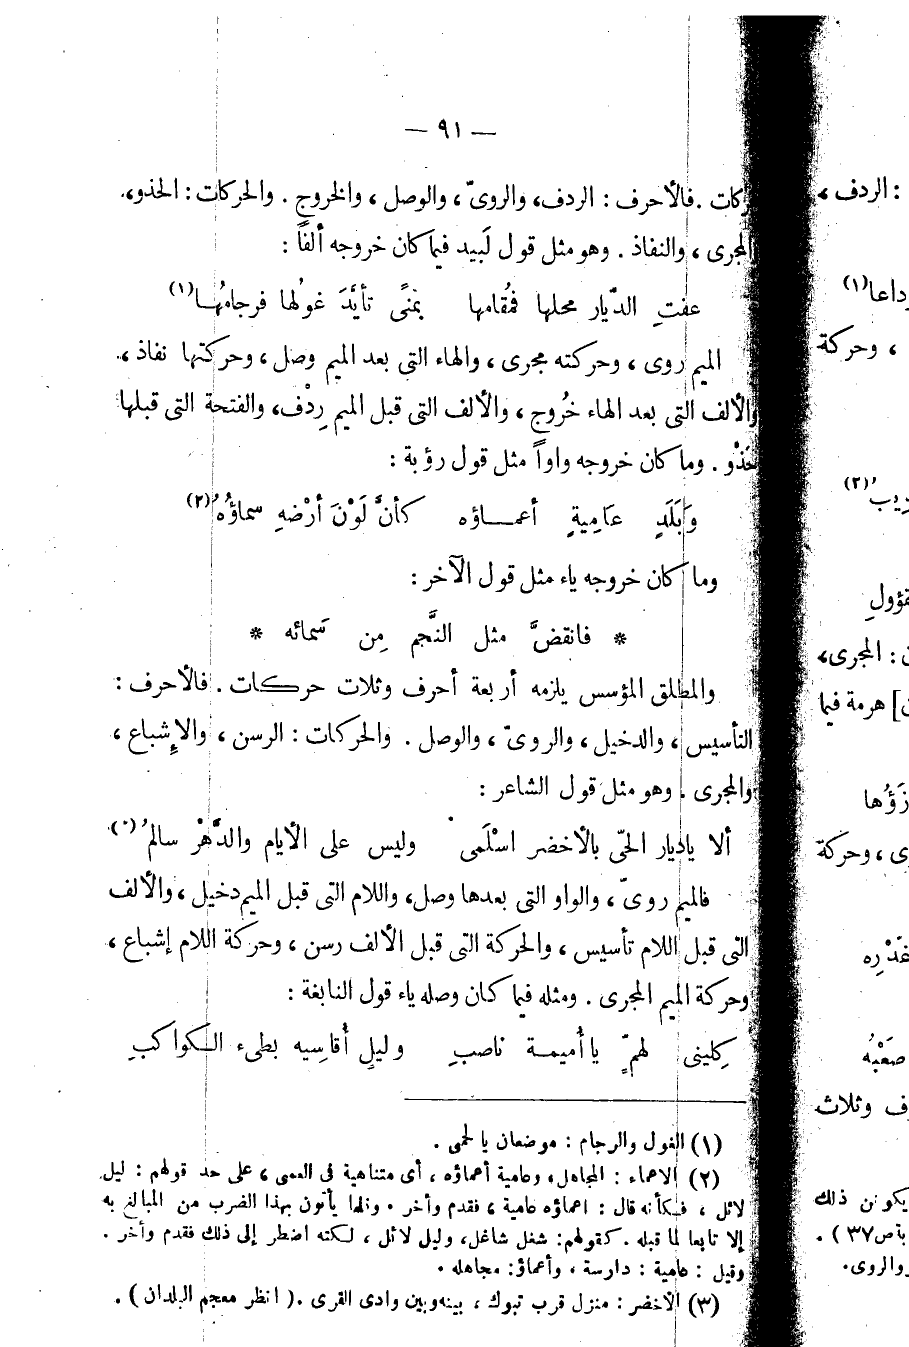 — ٩١ —
ركات . فالأحرف : الردف ، والروىّ ، والوصل ، والخروج . والحركات : الحذو ،
المجرى ، والنفاذ . وهو مثل قول لَبيد فيما كان خروجه ألفاً :
عفتِ الدّيار محلها فمُقامها بمنًى تأبَّدَ غولُها فرجامُهـا (١)
الميم روى ، وحركته مجرى ، والهاء التى بعد الميم وصل ، وحركتها نفاذ ،
والألف التى بعد الهاء خُروج ، والألف التى قبل الميم رِدْف ، والفتحة التى قبلها
حَذْو . وما كان خروجه واواً مثل قول رؤبة :
وَبَلَدٍ عَامِيةٍ أعمـــاؤه كأنَّ لَوْنَ أرْضهِ سماؤُهُ (٢)
وما كان خروجه ياء مثل قول الآخر :
* فانقضَّ مثل النَّجم مِن سَمائه *
والمطلق المؤسس يلزمه أربعة أحرف وثلاث حركات . فالأحرف :
التأسيس ، والدخيل ، والروىّ ، والوصل . والحركات : الرسن ، والإشباع ،
والمجرى . وهو مثل قول الشاعر :
ألا ياديار الحىّ بالأخضر اسْلَمى وليس على الأيام والدَّهْر سالمُ
فالميم روىّ ، والواو التى بعدها وصل، واللام التى قبل الميم دخيل ، والألف
التى قبل اللام تأسيس ، والحركة التى قبل الألف رسن ، وحركة اللام إشباع ،
وحركة الميم المجرى . ومثله فيما كان وصله ياء قول النابغة :
كِلينى لهمٍّ يا أُميمـة ناصبِ وليلٍ أُقاسِيه بطىء الـكواكبِ
(١) الغول والرجام : موضعان بالحمى .
(٢) الاعماء : المجاهل، وعامية أعماؤه ، أى متناهية فى العمى ، على حد قولهم : ليل
لائل ، فـكأنه قال : اعماؤه عامية ، فقدم وأخر . وقلما يأتون بهذا الضرب من المبالغ به
إلا تابعا لما قبله . كقولهم: شغل شاغل، وليل لائل ، لـكنه اضطر إلى ذلك فقدم وأخر .
وقيل : عامية : دارسة ، وأعماؤ: مجاهله .
(٣) الأخضر : منزل قرب تبوك ، بينه وبين وادى القرى . ( انظر معجم البلدان ) .
: الردف ،
(١)
، وحركة
(٢)
: المجرى،
هرمة فيما
ى ، وحركة
صَعْبُه
ف وثلاث
يكون ذلك
ص٣٧ ) .
والروى.